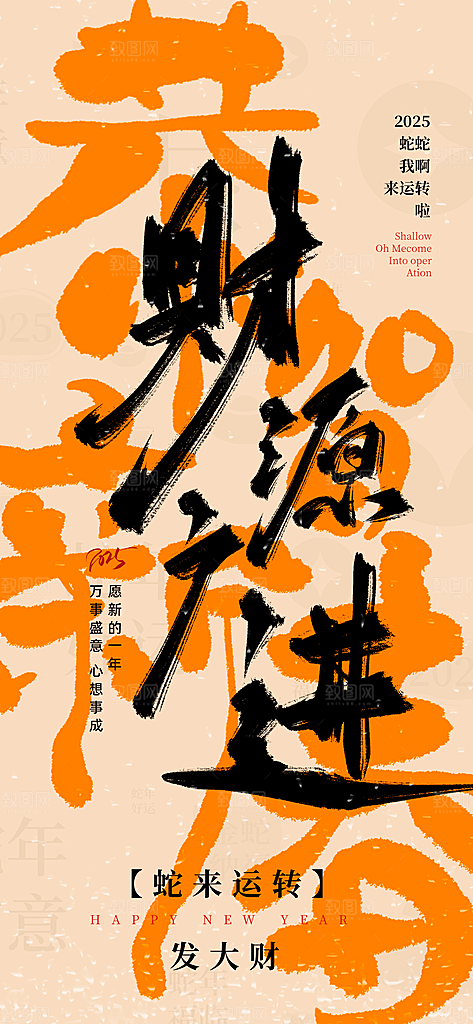 恭贺新禧
2025
蛇蛇
我啊
来运转
啦
Shallow
Oh Mecome
Into oper
Ation
财源广进
2025
愿新的一年
万事盛意 心想事成
【蛇来运转】
HAPPY NEW YEAR
发大财